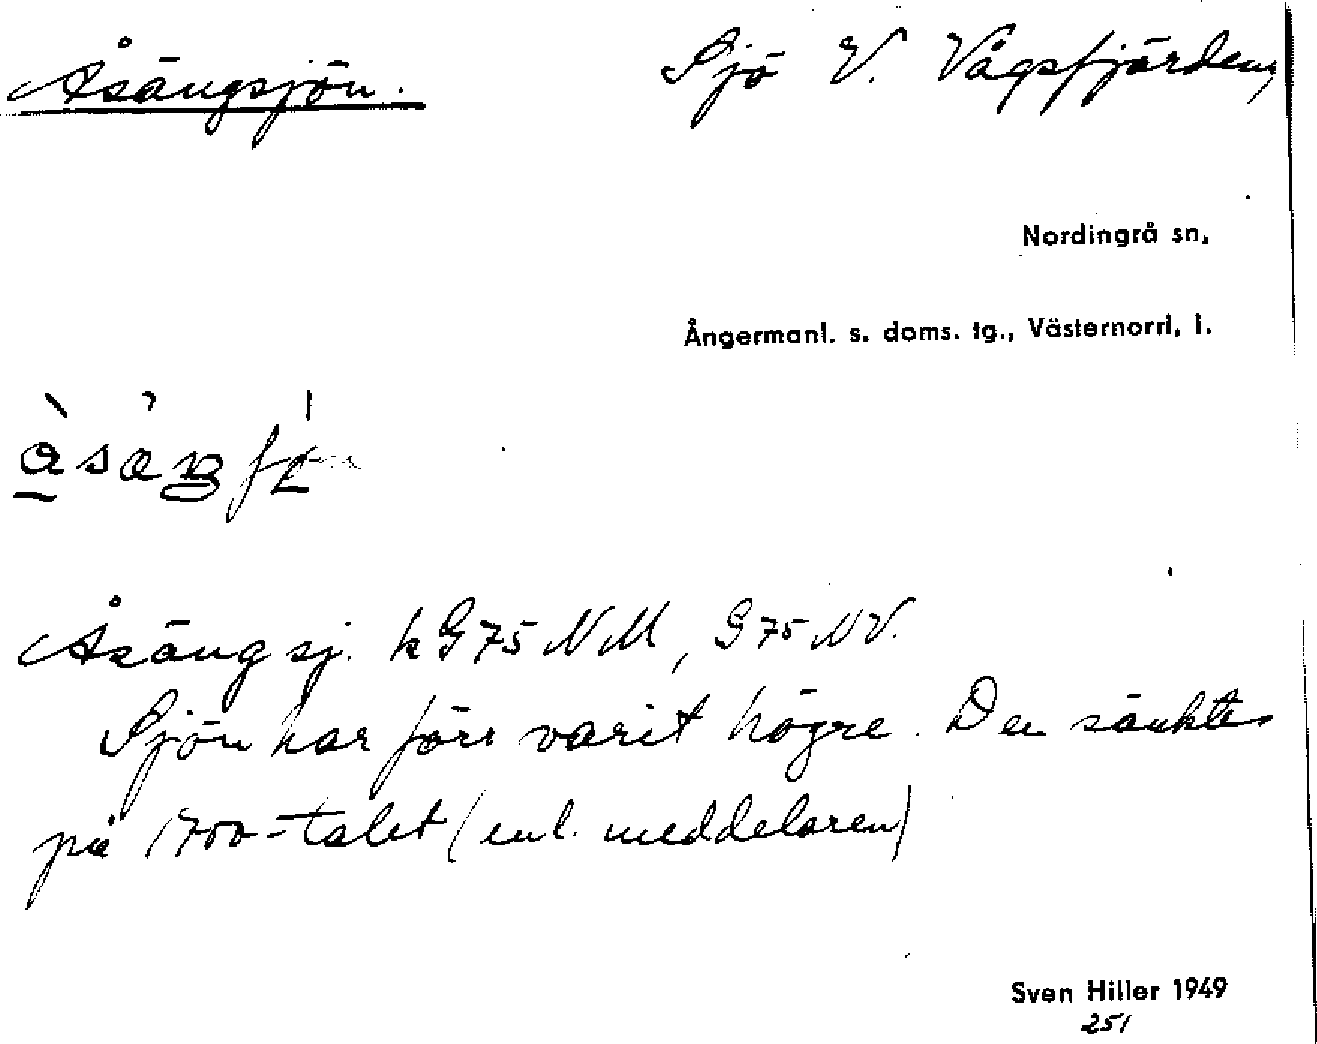 Åsängsjön. Sjö V. Vågsfjärden,
Nordingrå sn,
Ångermanl. s. doms. tg., Västernorrl. l.
Åsäng sj. kG75NM, G75NV.
Sjön har förr varit högre. Den sänktes
på 1700-talet (enl. meddelaren)
Sven Hiller 1949
251